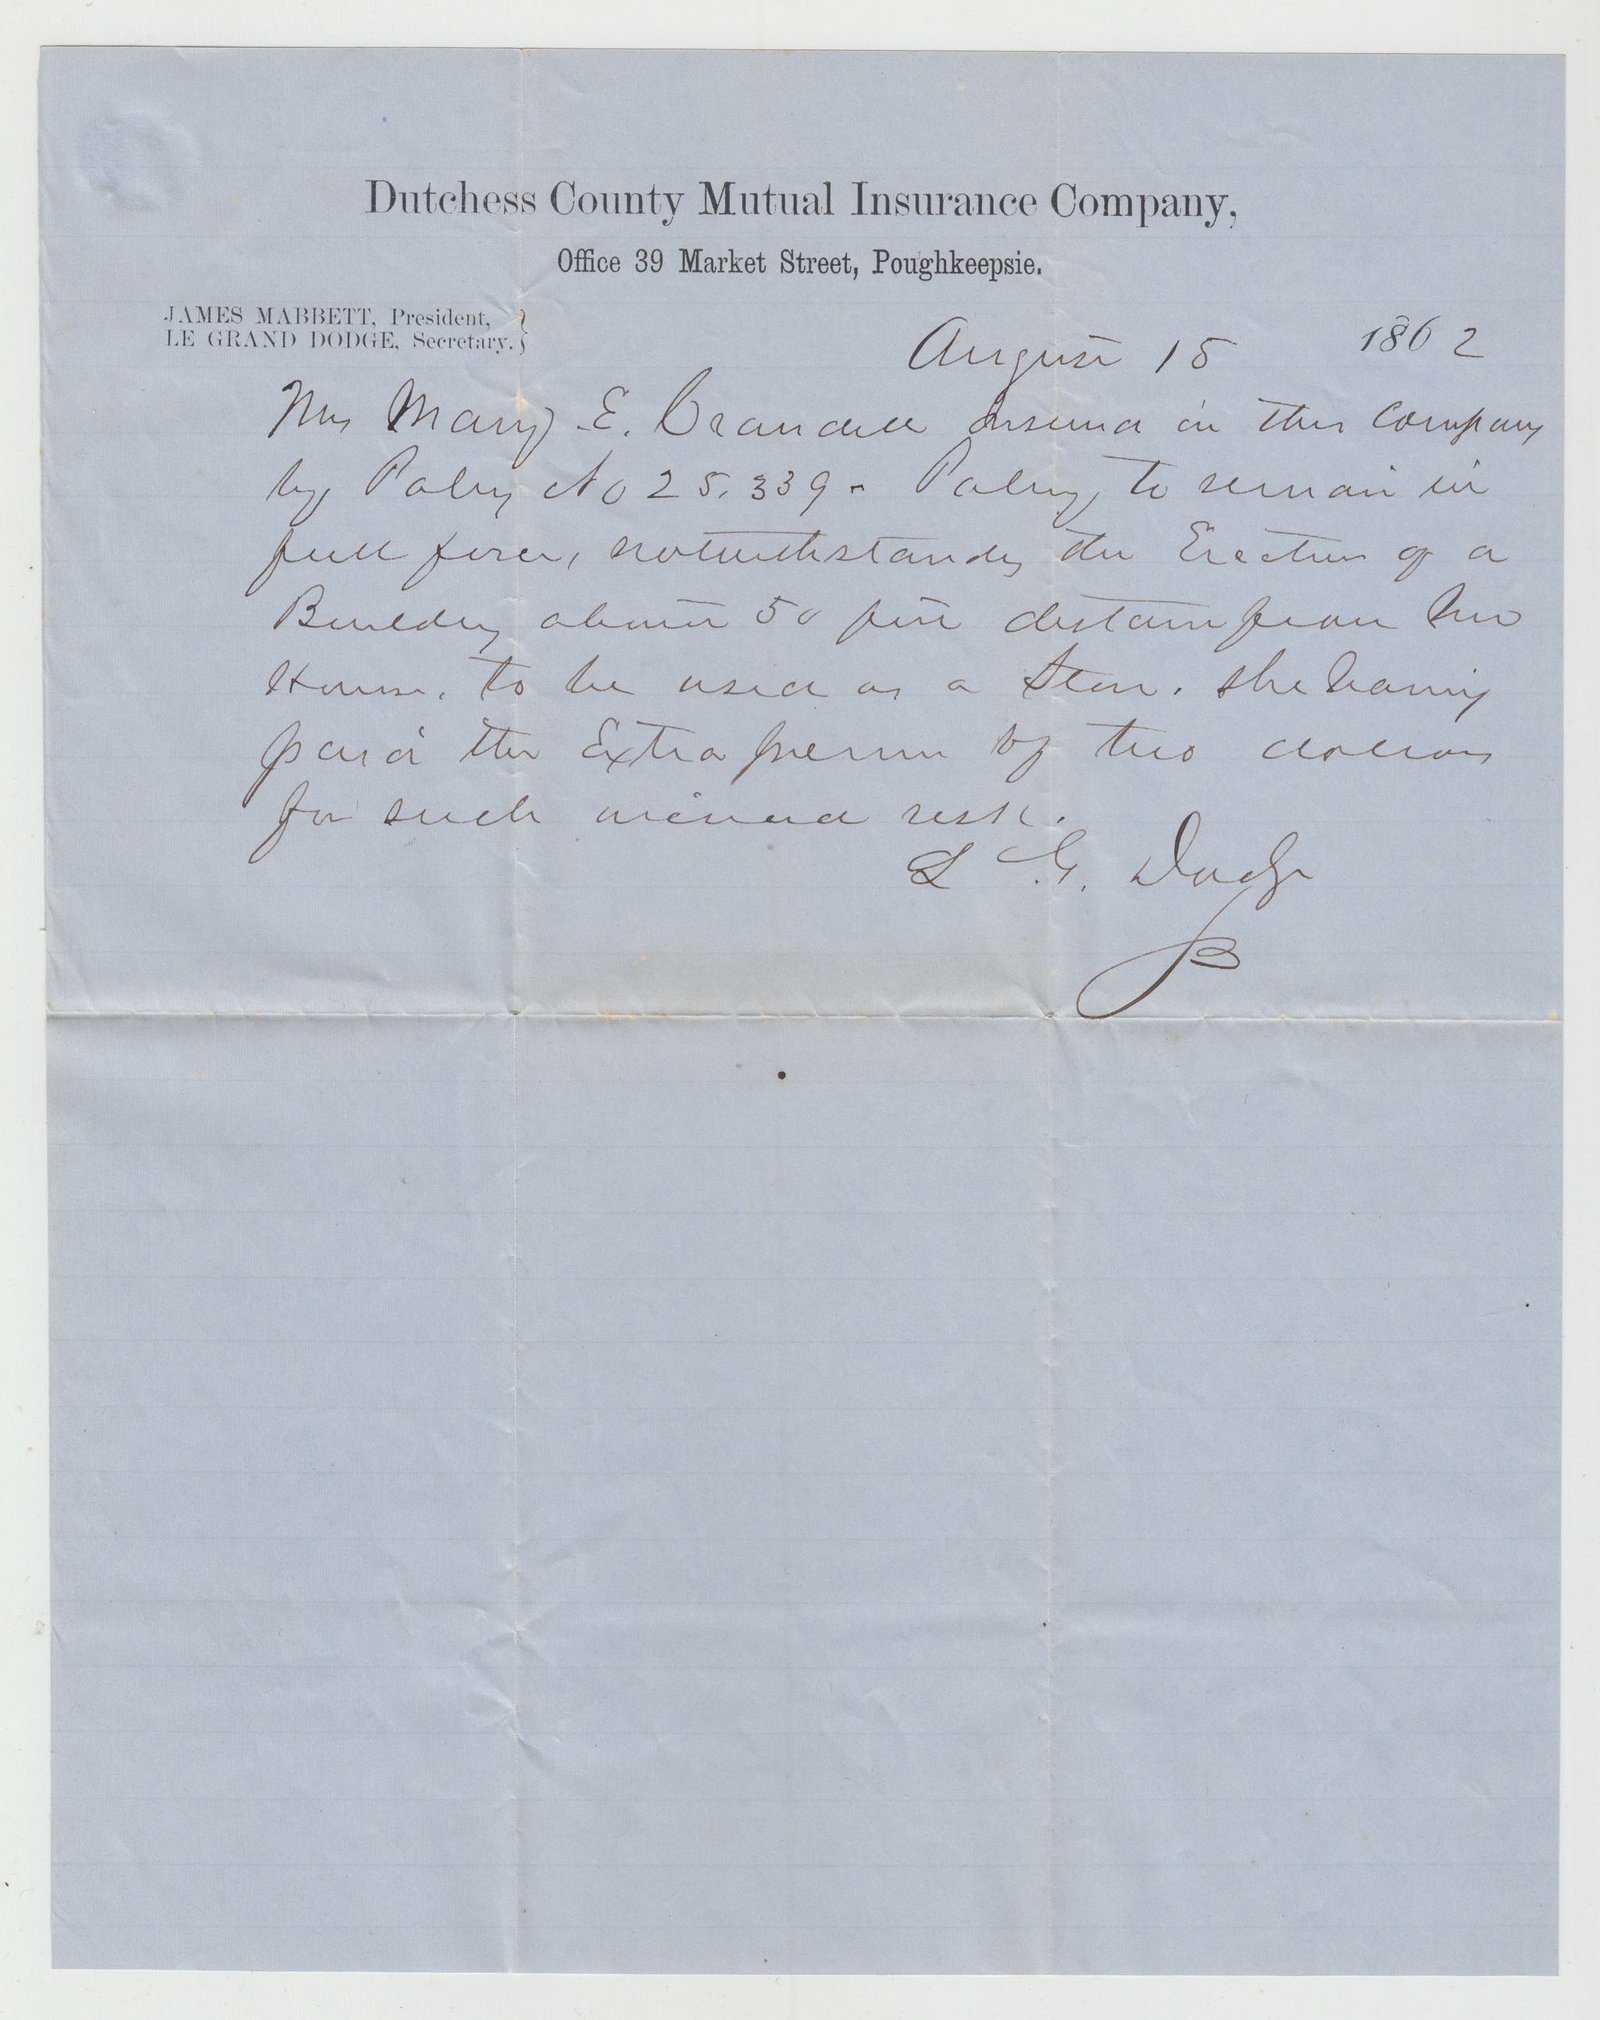 Dutchess County Mutual Insurance Company,
Office 39 Market Street, Poughkeepsie.
JAMES MABBETT, President,
LE GRAND DODGE, Secretary.
August 15 1862
Mrs Mary E. Crandell Insured in this Company
by Policy No 25.339 - Policy to remain in
full force, notwithstanding the Erection of a
Building about 50 feet distant from her
House, to be used as a Store. She having
paid the Extra premium of two dollars
for such increased risk.
L G. Dodge